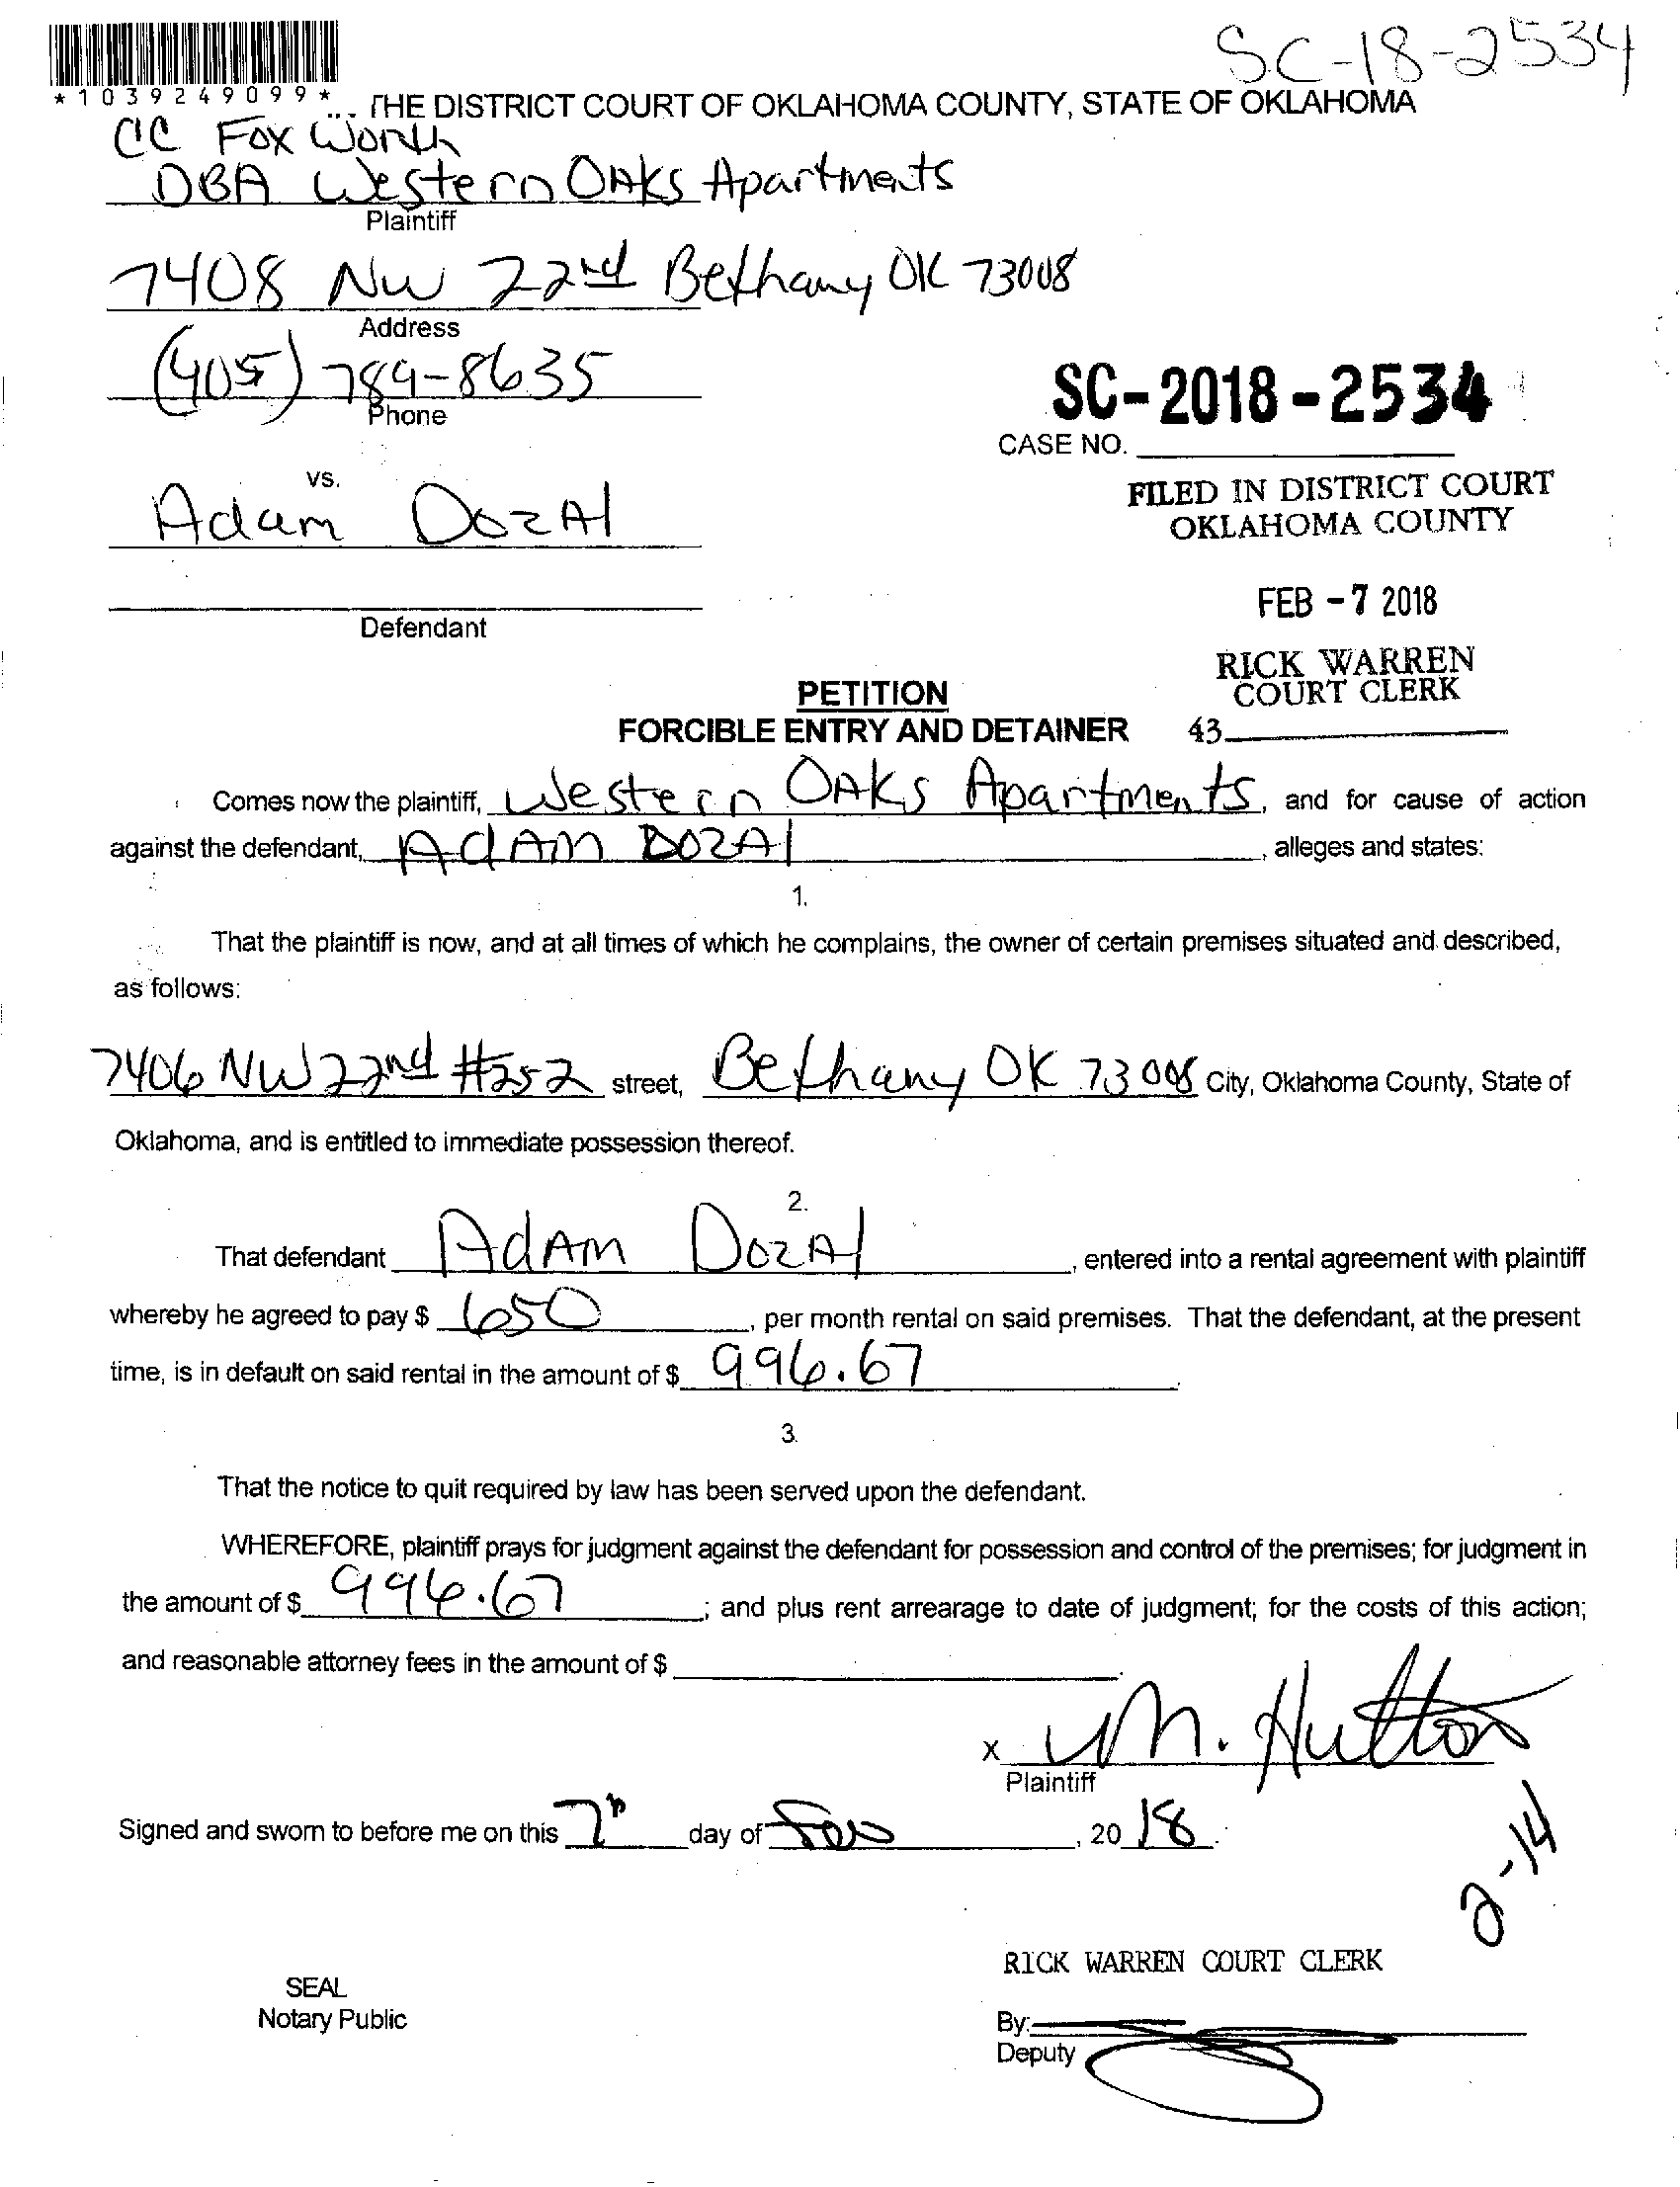 SC-18-2534
*1039249099*
THE DISTRICT COURT OF OKLAHOMA COUNTY, STATE OF OKLAHOMA
CC Fox Worth
DBA Western OAKs Apartments
Plaintiff
7408 NW 22nd Bethany OK 73008
Address
(405) 789-8635
Phone
SC-2018-2534
CASE NO.
vs.
Adam DozAl
FILED IN DISTRICT COURT
OKLAHOMA COUNTY
FEB -7 2018
Defendant
RICK WARREN
COURT CLERK
PETITION
FORCIBLE ENTRY AND DETAINER 43
Comes now the plaintiff, Western OAKs Apartments, and for cause of action
against the defendant, AdAm DOZAl, alleges and states:
1.
That the plaintiff is now, and at all times of which he complains, the owner of certain premises situated and described,
as follows:
7406 NW 22nd #252 street, Bethany OK 73008 City, Oklahoma County, State of
Oklahoma, and is entitled to immediate possession thereof.
2.
That defendant AdAm DozAl, entered into a rental agreement with plaintiff
whereby he agreed to pay $ 650, per month rental on said premises. That the defendant, at the present
time, is in default on said rental in the amount of $ 996.67.
3.
That the notice to quit required by law has been served upon the defendant.
WHEREFORE, plaintiff prays for judgment against the defendant for possession and control of the premises; for judgment in
the amount of $ 996.67; and plus rent arrearage to date of judgment; for the costs of this action;
and reasonable attorney fees in the amount of $
x M. Hutton
Plaintiff
Signed and sworn to before me on this 7th day of Feb, 2018.
2-14
RICK WARREN COURT CLERK
SEAL
Notary Public
By:
Deputy